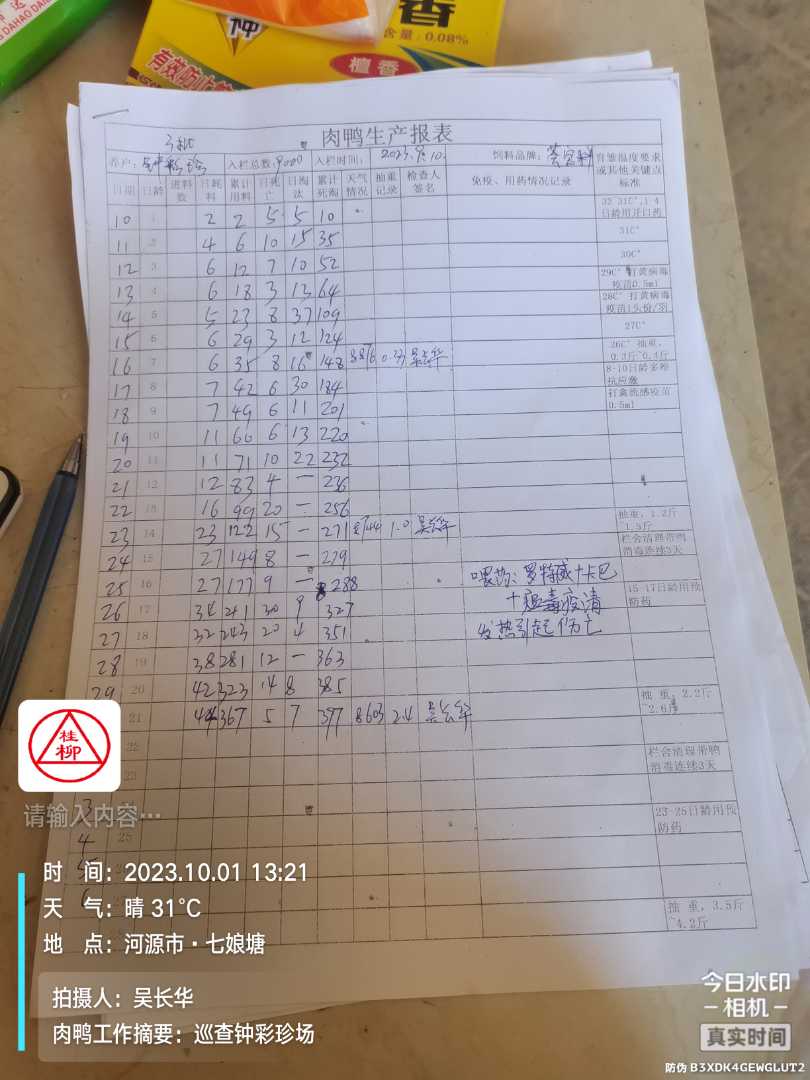 DAHAO DA
神
香
含量:0.08%
檀香
肉鸭生产报表
养户: 入栏总数:9000 入栏时间:2023.9.10. 饲料品牌: 育雏温度要求或其他关键点标准
日期 日龄 进料数 日耗料 累计用料 日死亡 日淘汰 累计死淘 天气情况 抽重记录 检查人签名 免疫、用药情况记录
10 1 2 2 5 5 10 32-31C°,1-4日龄用开口药
11 2 4 6 10 15 35 31C°
12 3 6 12 7 10 52 30C°
13 4 6 18 3 13 64 29C° 打黄病毒疫苗0.5ml
14 5 5 23 8 37 109 28C° 打黄病毒疫苗1头份/羽
15 6 6 29 3 12 124 27C°
16 7 6 35 8 16 148 26C° 抽重,0.3斤~0.4斤
17 8 7 42 6 30 184 8-10日龄多维抗应激
18 9 7 49 6 11 201 打禽流感疫苗0.5ml
19 10 11 60 6 13 220
20 11 11 71 10 22 232
21 12 12 83 4 一 236
22 13 16 99 20 一 256
23 14 23 122 15 一 271 8744 1.0 抽重,1.2斤~1.3斤
24 15 27 149 8 一 279 栏舍清理带鸭消毒连续3天
25 16 27 177 9 一 288 喂药:罗特威+卡巴
26 17 34 211 30 9 327 +瘟毒疫清 15-17日龄用预防药
27 18 32 243 20 4 351 发热引起伤亡
28 19 38 281 12 一 363
29 20 42 323 14 8 385
21 44 367 5 7 397 8603 2.4 抽重,2.2斤~2.6斤
22
23 栏舍清理带鸭消毒连续3天
3
4 25 23-25日龄用预防药
5
6
抽重,3.5斤~4.2斤
桂柳
请输入内容…
时 间:2023.10.01 13:21
天 气:晴 31℃
地 点:河源市·七娘塘
拍摄人:吴长华
肉鸭工作摘要:巡查钟彩珍场
今日水印
相机
真实时间
防伪 B3XDK4GEWGLUT2